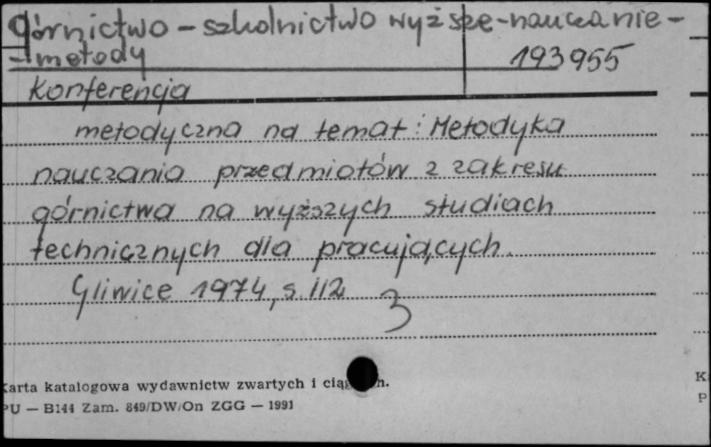 górnictwo - szkolnictwo wyższe - nauczanie -
- metody
193955
Konferencja
metodyczna na temat: Metodyka
nauczania przedmiotów z zakresu
górnictwa na wyższych studiach
technicznych dla pracujących.
Gliwice 1974, s. 112
3
Karta katalogowa wydawnictw zwartych i
PU — B144 Zam. 849/DW/On ZGG — 1991
K
P